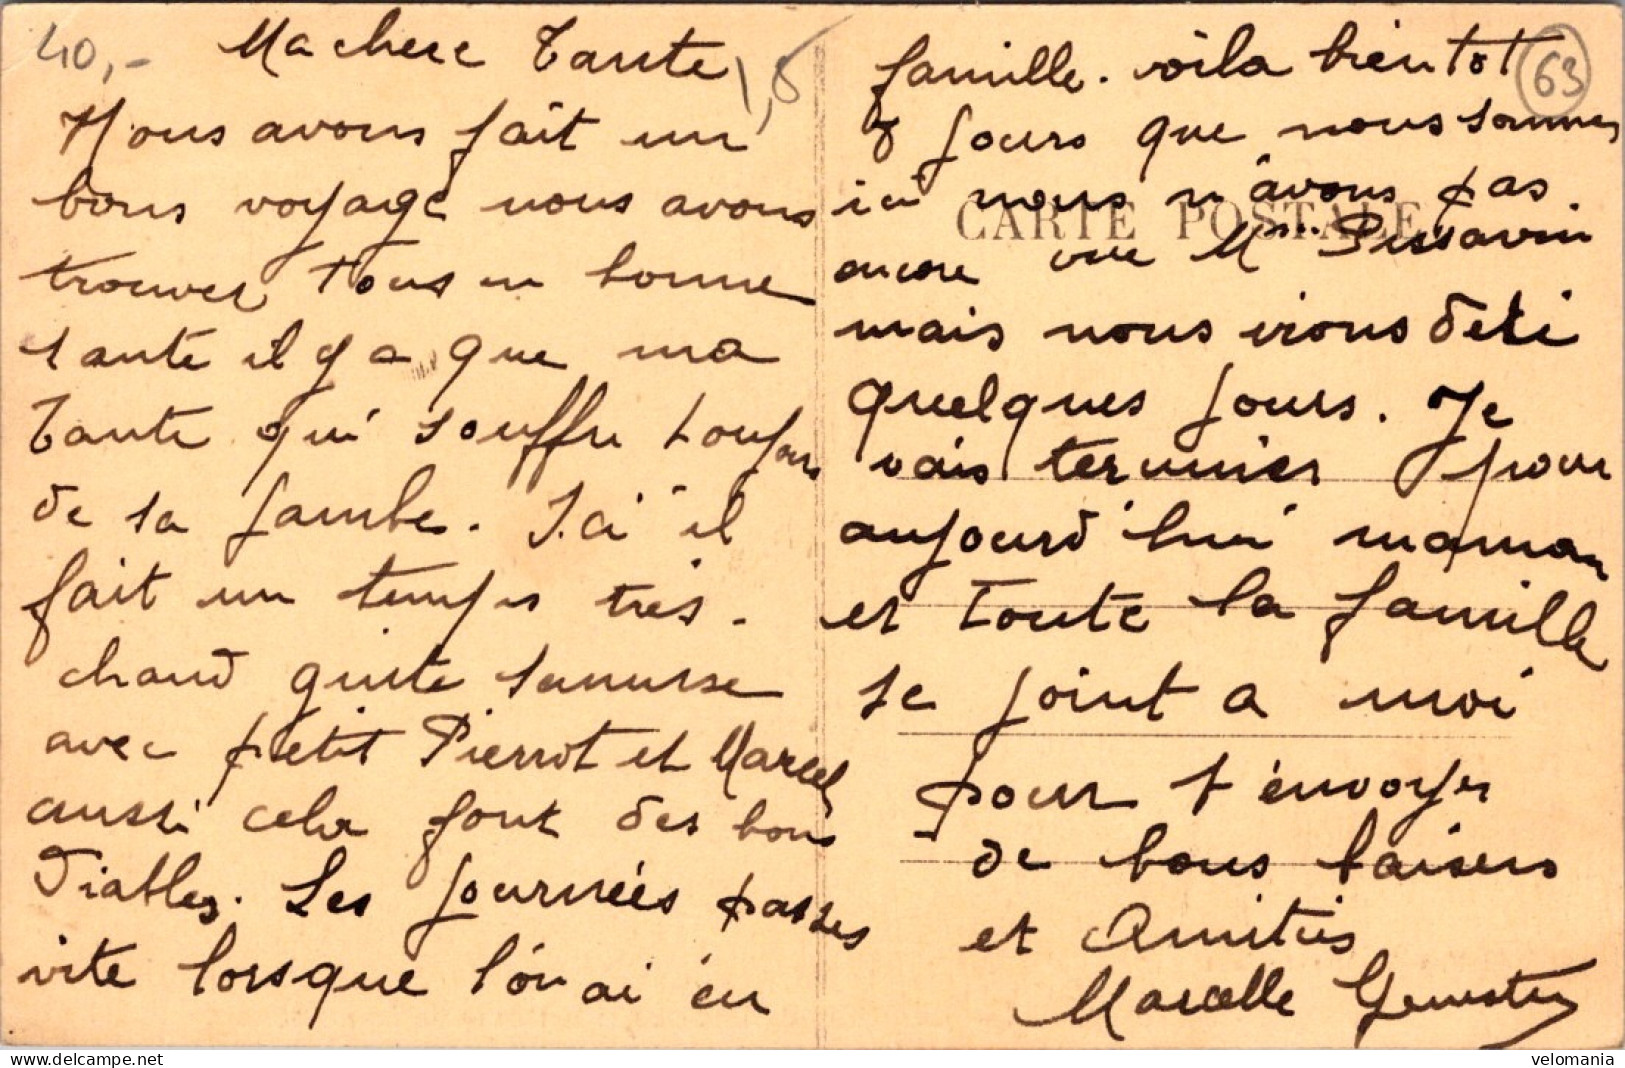 40,-
Ma chere Tante
1,5
Nous avons fait un
bons voyage nous avons
trouver tous en bonne
santé il y a que ma
Tante qui souffre toujours
de sa jambe. Ici il
fait un temps très.
chaud
avec petit Pierrot et Marcel
aussi cela font des bons
Diables. Les journées passes
vite lorsque l'on ai en
famille. voila bientot
63
8 jours que nous sommes
ici nous n'avons pas
CARTE POSTALE
encore vue Mme Pessavin
mais nous irons d'ici
quelques jours. Je
vais terminer pour
aujourd'hui maman
et toute la famille
se joint a moi
pour t'envoyer
de bons baisers
et Amitiés
Marcelle
velomania
delcampe.net